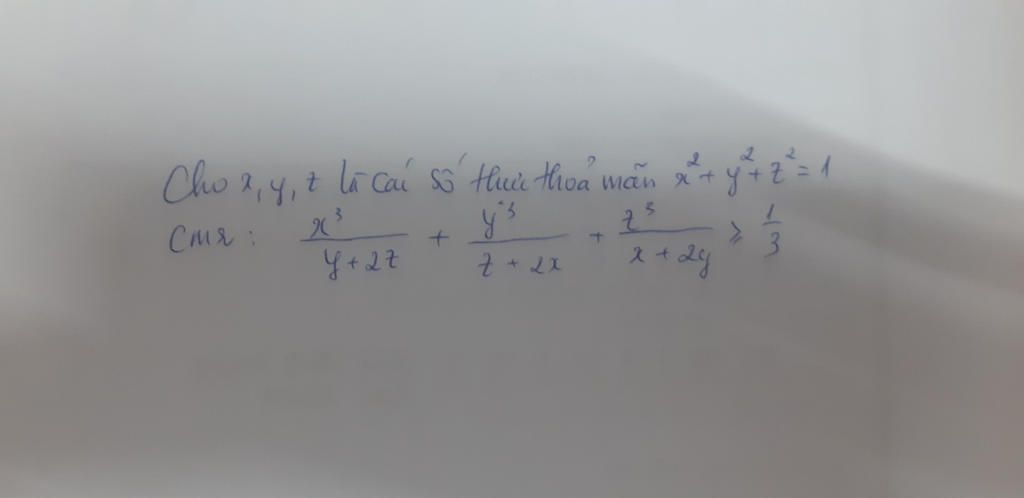 Cho x, y, z là các số thực thoả mãn x² + y² + z² = 1
CMR : x³/(y + 2z) + y³/(z + 2x) + z³/(x + 2y) ≥ 1/3